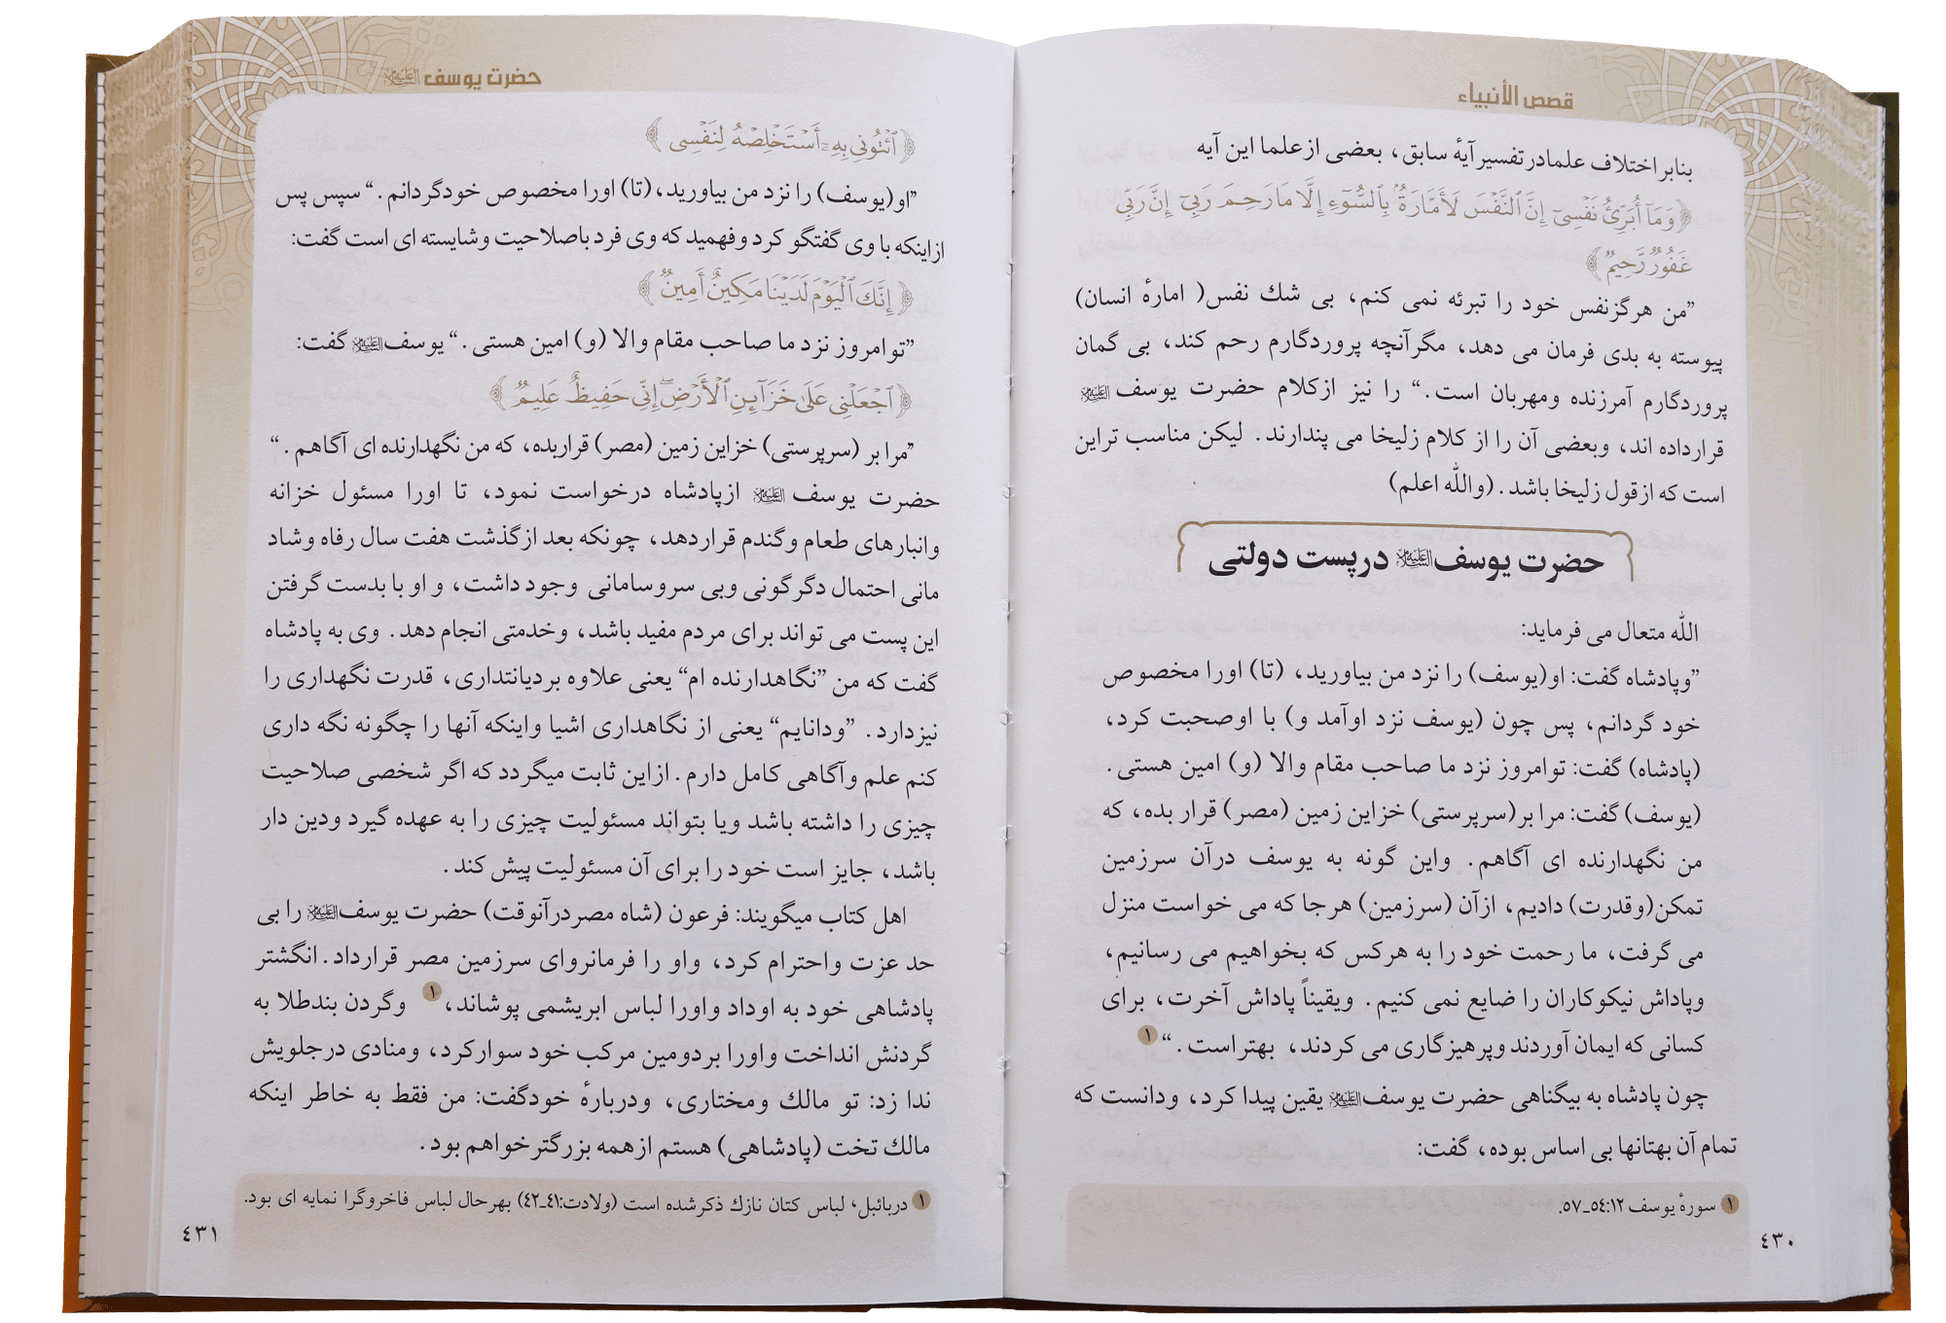 قصص الأنبياء
بنابر اختلاف علما در تفسیر آیۀ سابق، بعضی از علما این آیه
﴿وَمَآ أُبَرِّئُ نَفْسِيٓ إِنَّ ٱلنَّفْسَ لَأَمَّارَةُۢ بِٱلسُّوٓءِ إِلَّا مَا رَحِمَ رَبِّيٓ إِنَّ رَبِّي
غَفُورٌ رَّحِيمٌ﴾
”من هرگز نفس خود را تبرئه نمی کنم، بی شك نفس( امارۀ انسان)
پیوسته به بدی فرمان می دهد، مگر آنچه پروردگارم رحم کند، بی گمان
پروردگارم آمرزنده ومهربان است.“ را نیز ازکلام حضرت یوسف علیه‌السلام
قرارداده اند، وبعضی آن را از کلام زلیخا می پندارند. لیکن مناسب تراین
است که ازقول زلیخا باشد. (والله اعلم)
حضرت یوسف علیه‌السلام درپست دولتی
الله متعال می فرماید:
”وپادشاه گفت: او(یوسف) را نزد من بیاورید، (تا) اورا مخصوص
خود گردانم، پس چون (یوسف نزد اوآمد و) با اوصحبت کرد،
(پادشاه) گفت: توامروز نزد ما صاحب مقام والا (و) امین هستی.
(یوسف) گفت: مرا بر(سرپرستی) خزاین زمین (مصر) قرار بده، که
من نگهدارنده ای آگاهم. واین گونه به یوسف درآن سرزمین
تمکن(وقدرت) دادیم، ازآن (سرزمین) هرجا که می خواست منزل
می گرفت، ما رحمت خود را به هرکس که بخواهیم می رسانیم،
وپاداش نیکوکاران را ضایع نمی کنیم. ویقیناً پاداش آخرت، برای
کسانی که ایمان آوردند وپرهیزگاری می کردند، بهتراست.“ ۱
چون پادشاه به بیگناهی حضرت یوسف علیه‌السلام یقین پیدا کرد، ودانست که
تمام آن بهتانها بی اساس بوده، گفت:
۱ سورۀ یوسف ۱۲:٥٤ـ٥٧.
٤٣٠
حضرت یوسف علیه‌السلام
﴿ٱئْتُونِي بِهِۦٓ أَسْتَخْلِصْهُ لِنَفْسِي﴾
”او(یوسف) را نزد من بیاورید،(تا) اورا مخصوص خودگردانم.“ سپس پس
ازاینکه با وی گفتگو کرد وفهمید که وی فرد باصلاحیت وشایسته ای است گفت:
﴿إِنَّكَ ٱلْيَوْمَ لَدَيْنَا مَكِينٌ أَمِينٌ﴾
”توامروز نزد ما صاحب مقام والا (و) امین هستی.“ یوسف علیه‌السلام گفت:
﴿ٱجْعَلْنِي عَلَىٰ خَزَآئِنِ ٱلْأَرْضِۖ إِنِّي حَفِيظٌ عَلِيمٌ﴾
”مرا بر (سرپرستی) خزاین زمین (مصر) قراربده، که من نگهدارنده ای آگاهم.“
حضرت یوسف علیه‌السلام ازپادشاه درخواست نمود، تا اورا مسئول خزانه
وانبارهای طعام وگندم قراردهد، چونکه بعد ازگذشت هفت سال رفاه وشاد
مانی احتمال دگرگونی وبی سروسامانی وجود داشت، و او با بدست گرفتن
این پست می تواند برای مردم مفید باشد، وخدمتی انجام دهد. وی به پادشاه
گفت که من ”نگاهدارنده ام“ یعنی علاوه بردیانتداری، قدرت نگهداری را
نیزدارد. ”ودانایم“ یعنی از نگاهداری اشیا واینکه آنها را چگونه نگه داری
کنم علم وآگاهی کامل دارم. ازاین ثابت میگردد که اگر شخصی صلاحیت
چیزی را داشته باشد ویا بتواند مسئولیت چیزی را به عهده گیرد ودین دار
باشد، جایز است خود را برای آن مسئولیت پیش کند.
اهل کتاب میگویند: فرعون (شاه مصردرآنوقت) حضرت یوسف علیه‌السلام را بی
حد عزت واحترام کرد، واو را فرمانروای سرزمین مصر قرارداد. انگشتر
پادشاهی خود به اوداد واورا لباس ابریشمی پوشاند، ۱ وگردن بندطلا به
گردنش انداخت واورا بردومین مرکب خود سوارکرد، ومنادی درجلویش
ندا زد: تو مالك ومختاری، ودربارۀ خودگفت: من فقط به خاطر اینکه
مالك تخت (پادشاهی) هستم ازهمه بزرگترخواهم بود.
۱ دربائبل، لباس کتان نازك ذکرشده است (ولادت:٤١ـ٤٢) بهرحال لباس فاخروگرا نمایه ای بود.
٤٣١